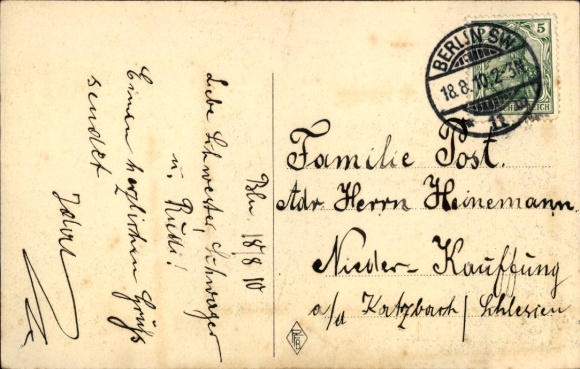 Bln 18/8 10
Liebe Schwester, Schwager
u. Rudi!
Einen herzlichen Gruß
sendet
BERLIN SW.
18.8.10.2-3N.
* 11 *
5
DEUTSCHES REICH
Familie Post.
Adr. Herrn Heinemann.
Nieder-Kauffung
a/d Katzbach/Schlesien